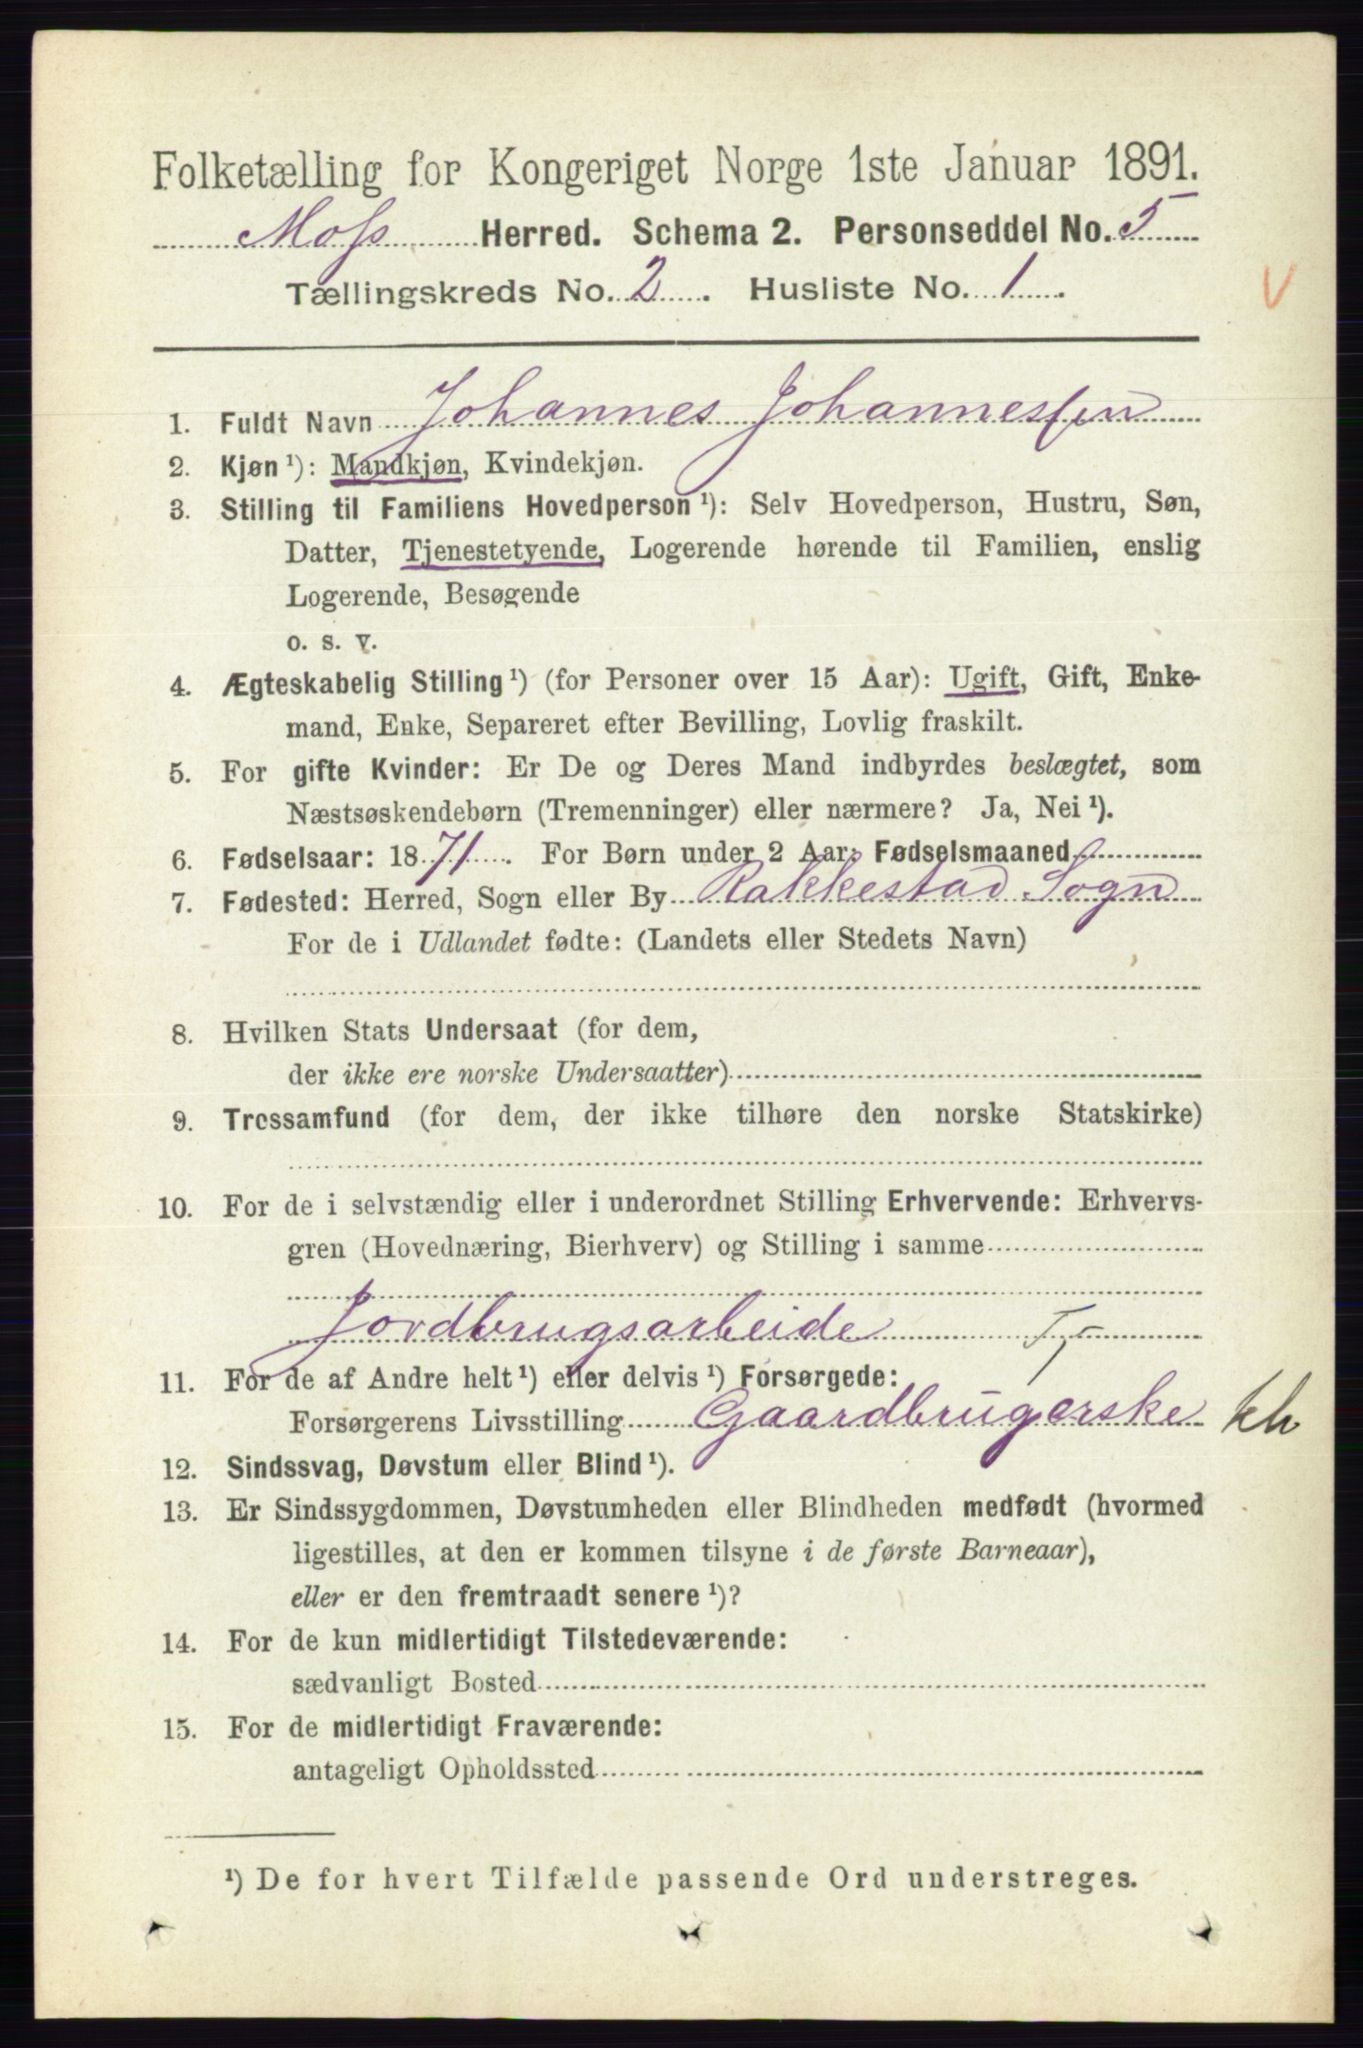 Folketælling for Kongeriget Norge 1ste Januar 1891.
Moss Herred. Schema 2. Personseddel No. 5
Tællingskreds No. 2. Husliste No. 1.
V
1. Fuldt Navn Johannes Johannessen
2. Kjøn ¹): Mandkjøn, Kvindekjøn.
3. Stilling til Familiens Hovedperson ¹): Selv Hovedperson, Hustru, Søn,
Datter, Tjenestetyende, Logerende hørende til Familien, enslig
Logerende, Besøgende
o. s. v.
4. Ægteskabelig Stilling ¹) (for Personer over 15 Aar): Ugift, Gift, Enke-
mand, Enke, Separeret efter Bevilling, Lovlig fraskilt.
5. For gifte Kvinder: Er De og Deres Mand indbyrdes beslægtet, som
Næstsøskendebørn (Tremenninger) eller nærmere? Ja, Nei ¹).
6. Fødselsaar: 1871. For Børn under 2 Aar: Fødselsmaaned
7. Fødested: Herred, Sogn eller By Rakkestad Sogn
For de i Udlandet fødte: (Landets eller Stedets Navn)
8. Hvilken Stats Undersaat (for dem,
der ikke ere norske Undersaatter)
9. Trossamfund (for dem, der ikke tilhøre den norske Statskirke)
10. For de i selvstændig eller i underordnet Stilling Erhvervende: Erhvervs-
gren (Hovednæring, Bierhverv) og Stilling i samme
Jordbrugsarbeide
11. For de af Andre helt ¹) eller delvis ¹) Forsørgede:
Forsørgerens Livsstilling Gaardbrugerske
12. Sindssvag, Døvstum eller Blind ¹).
13. Er Sindssygdommen, Døvstumheden eller Blindheden medfødt (hvormed
ligestilles, at den er kommen tilsyne i de første Barneaar),
eller er den fremtraadt senere ¹)?
14. For de kun midlertidigt Tilstedeværende:
sædvanligt Bosted
15. For de midlertidigt Fraværende:
antageligt Opholdssted
¹) De for hvert Tilfælde passende Ord understreges.